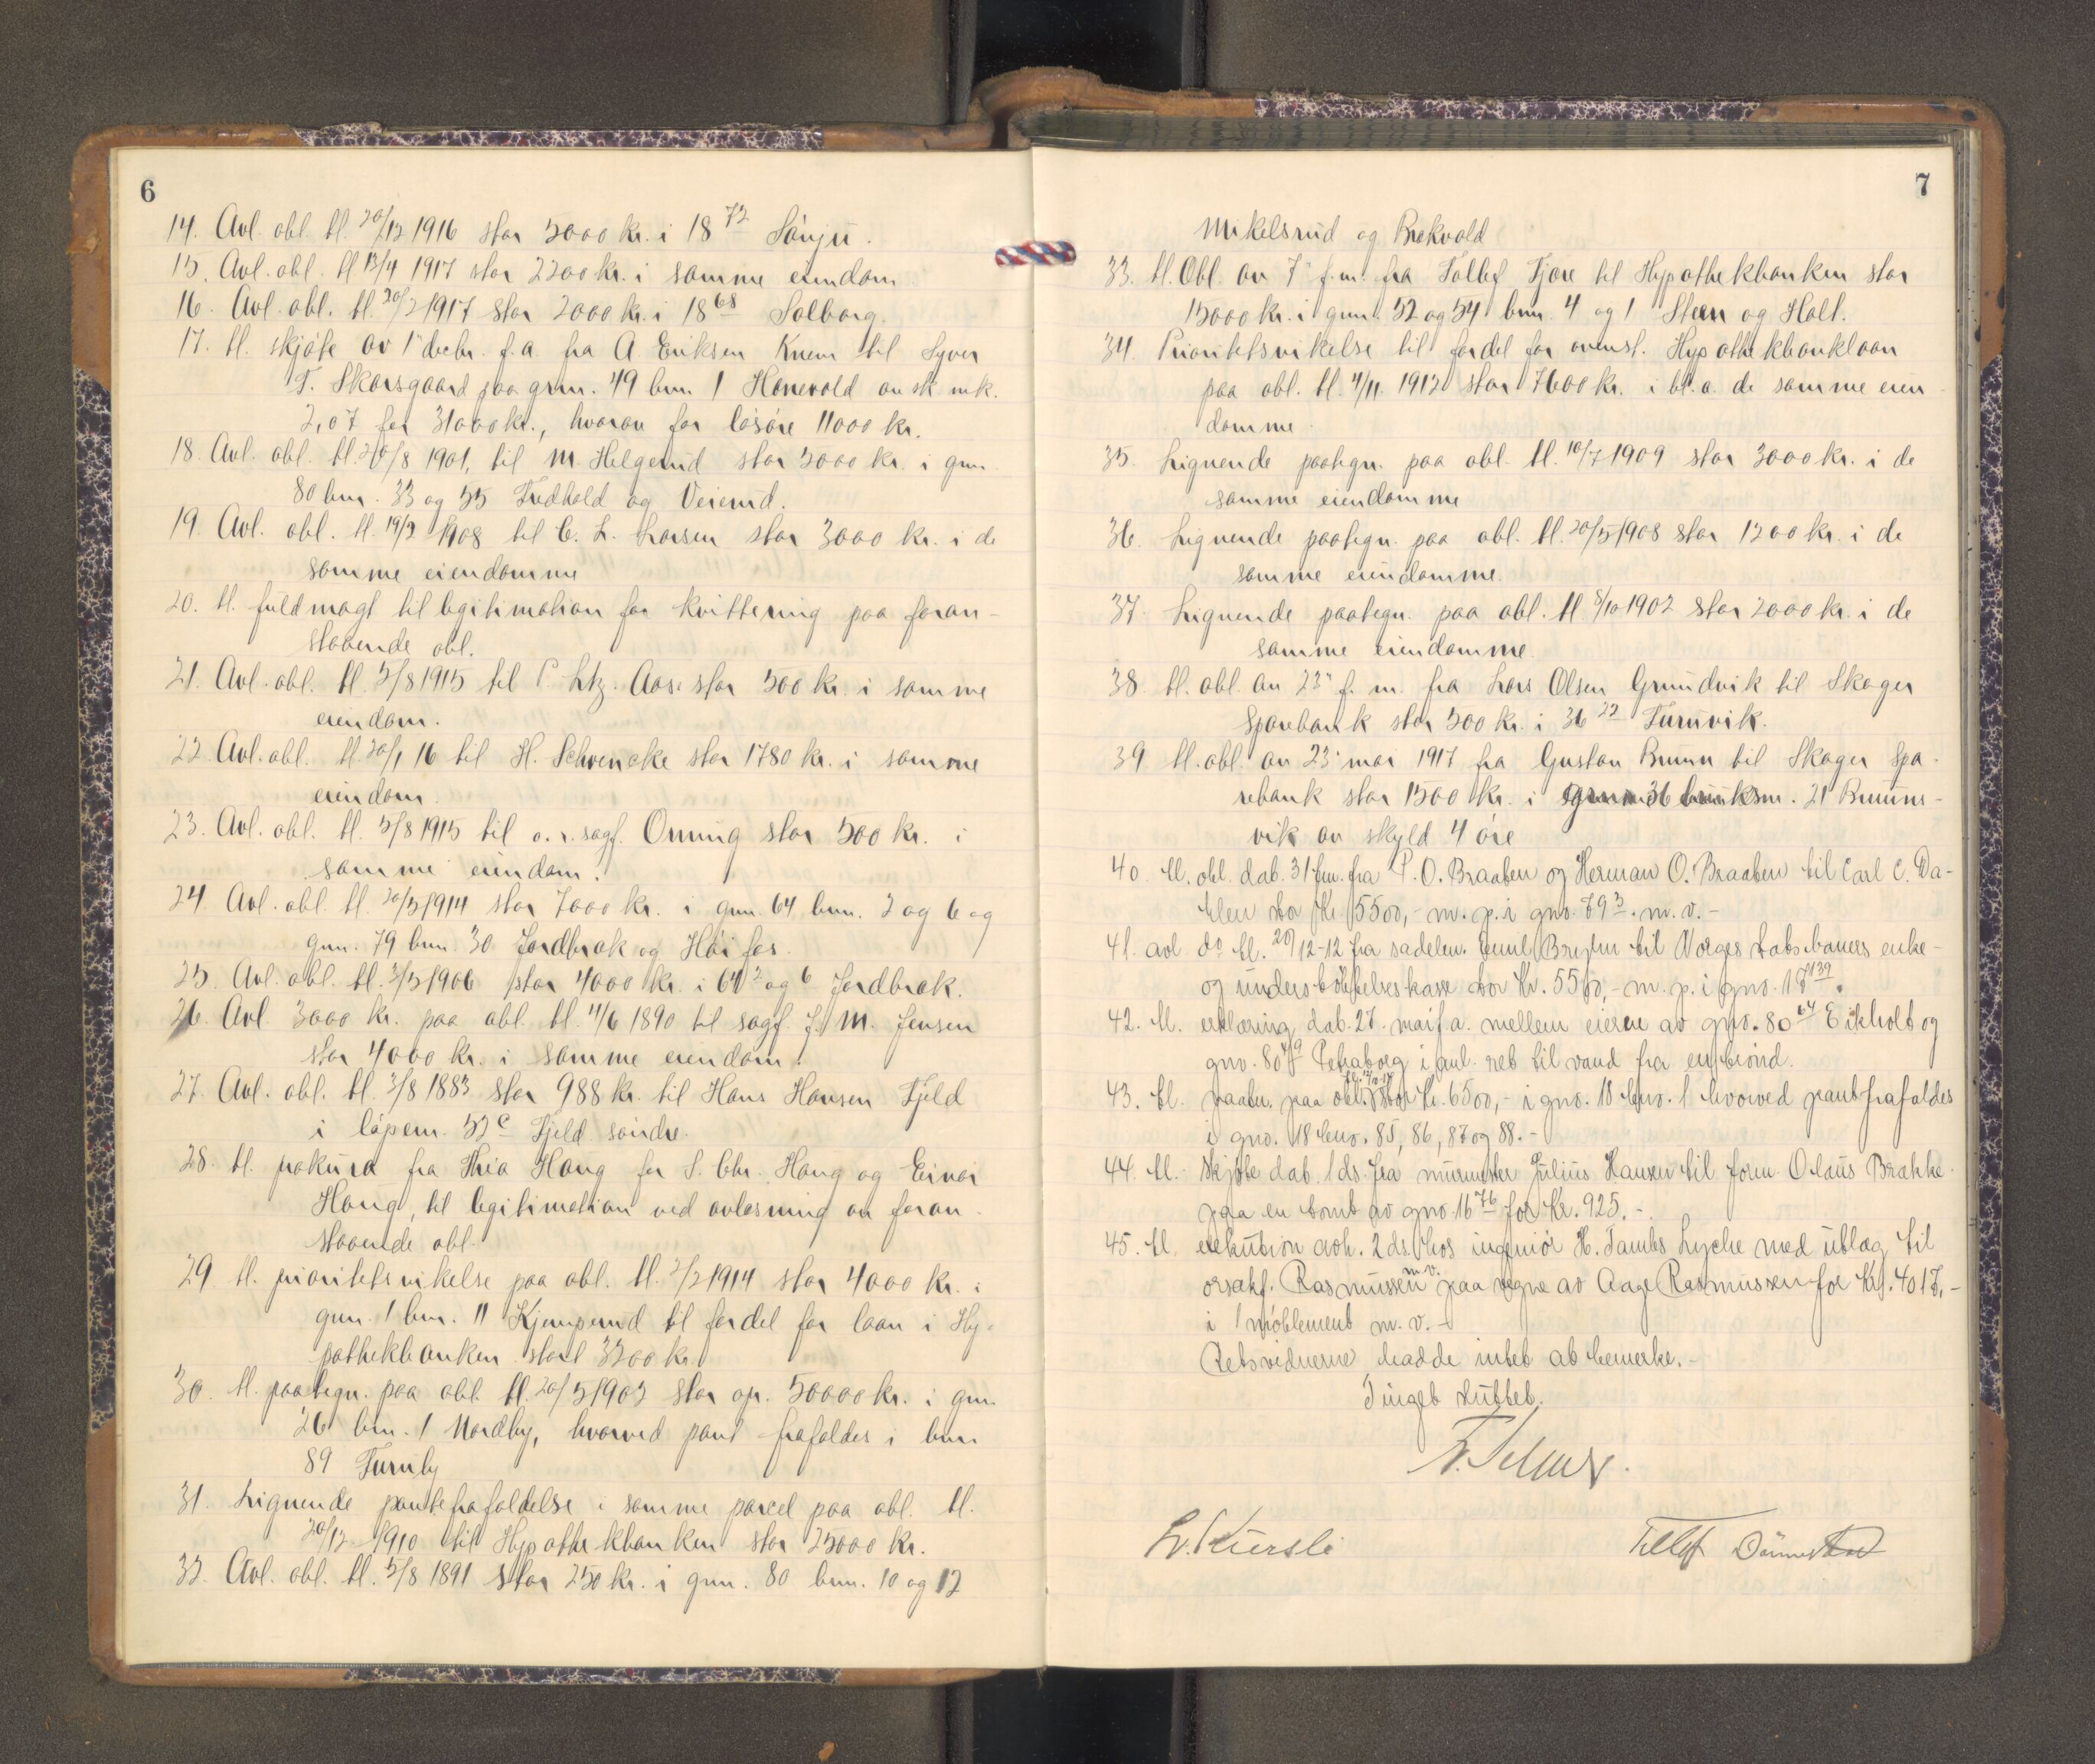 6
14. Avl. obl. tl. 20/12 1916 stor 5000 kr. i 18 72 Sönju.
15. Avl. obl. tl 13/4 1917 stor 2200 kr. i samme eiendom
16. Avl. obl. tl. 20/2 1917 stor 2000 kr. i 18 68 Solborg.
17. tl. skjöte av 1" decbr. f.a. fra A Eriksen Knem til Syver
T. Skarsgaard paa gnn. 49 bnn. 1 Hanevold av sk mk.
2,07 for 31000 kr., hvorav for lösöre 11000 kr.
18. Avl. obl. tl. 20/8 1901, til M. Helgerud stor 5000 kr. i gnn.
80 bnn. 33 og 55 Fredhold og Veierud.
19. Avl. obl. tl. 19/2 1908 til C. L. Larsen stor 3000 kr. i de
samme eiendomme
20. tl. fuldmagt til legitimation for kvittering paa foran-
staaende obl.
21. Avl. obl. tl. 5/8 1915 til P. Ltz. Aas. stor 500 kr. i samme
eiendom.
22. Avl. obl. tl. 20/1 16 til H. Schvencke stor 1780 kr. i samme
eiendom.
23. Avl. obl. tl. 5/8 1915 til o.r.sagf. Onning stor 500 kr. i
samme eiendom.
24. Avl. obl. tl. 20/5 1914 stor 7000 kr. i gnn. 64 bnn. 2 og 6 og
gnn. 79 bnn. 30 Jordbrek og Höifos.
25. Avl. obl. tl. 5/5 1906 stor 4000 kr. i 64 2 og 6 Jordbrek.
26. Avl. 3000 kr. paa obl. tl. 4/6 1890 til sagf. J. M. Jensen
stor 4000 kr. i samme eiendom.
27. Avl. obl. tl. 3/8 1883 stor 988 kr. til Hans Hansen Fjeld
i löpenr. 52 c Fjeld söndre.
28. tl. prokura fra Thea Haug for S. Chr. Haug og Einar
Haug, til legitimation ved avlesning av foran-
staaende obl.
29. tl. prioritetsvikelse paa obl. tl. 2/2 1914 stor 4000 kr. i
gnn. 1 bnn. 11 Kjemperud til fordel for laan i Hy-
pothekbanken stort 3200 kr.
30. tl. paategn. paa obl. tl. 20/5 1903 stor opr. 50000 kr. i gnn.
26 bnn. 1 Nordby, hvorved pant frafaldes i bnn
89 Furuly
31. Lignende pantefrafaldelse i samme parcel paa obl. tl.
20/12 1910 til Hypothekbanken stor 25000 kr.
32. Avl. obl. tl. 5/8 1891 stor 250 kr. i gnn. 80 bnn. 10 og 12
7
Mikelsrud og Brekvold
33. tl. Obl. av 7" f.m. fra Tollef Fjöre til Hypothekbanken stor
15000 kr. i gnn. 52 og 54 bnn. 4 og 1 Steen og Holt.
34. Prioritetsvikelse til fordel for ovenst. Hypothekbanklaan
paa obl. tl. 4/11 1912 stor 7600 kr. i bl.a. de samme eien-
domme.
35. Lignende paategn. paa obl. tl. 10/7 1909 stor 3000 kr. i de
samme eiendomme
36. Lignende paategn. paa obl. tl. 20/5 1908 stor 1200 kr. i de
samme eiendomme.
37. Lignende paategn. paa obl. tl 8/10 1902 stor 2000 kr. i de
samme eiendomme.
38. tl. obl. av 23" f. m. fra Lars Olsen Grundvik til Skoger
Sparebank stor 500 kr. i 36 22 Furuvik.
39 tl. obl. av 23" mai 1917 fra Gustav Bruun til Skoger Spa-
rebank stor 1500 kr. i gnn 36 bruksnr. 21 Bruuns-
vik av skyld 4 öre
40. tl. obl. dat. 31 f.m. fra P. O. Braaten og Herman O. Braaten til Carl C. Da-
hlen stor kr. 5500,- m. p. i gno. 79 3. m. v.-
41. avl do tl. 20/12-12 fra sadelm. Emil til Norges enke-
og understöttelseskasse stor kr. 5500,- m. p. i gno. 18 139.
42. tl. erklæring dat. 27. mai f.a. mellem eierne av gno. 80 64 Eikholt og
gno. 80 49 Petraborg i anl. ret til vand fra en brönd.
43. tl. paategn. paa obl. stor kr. 6500,- i gno. 18 bno. 1 hvorved pant frafaldes
i gno. 18 bno. 85, 86, 87 og 88.-
44. tl. skjöte dat. 1 ds. fra murmester Julius Hansen til form Olaus Brakke
paa en tomt av gno 16 76 for kr. 925.-
45. tl. exekution avh. 2 ds. hos ingeniör H. Tambs Lyche med utlæg til
orsakf. Rasmussen m.v. paa vegne av Aage Rasmussen for kr. 4017,-
i 1 möblement m. v.-
Retsvidnerne hadde intet at bemerke.-
Tinget sluttet.